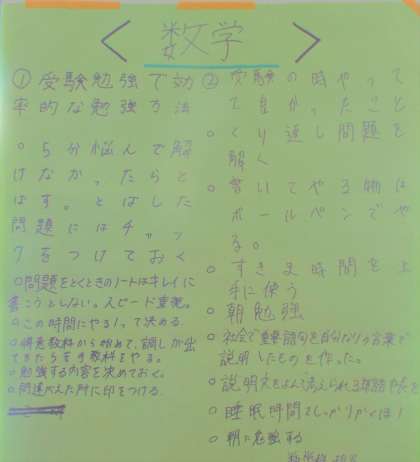 数学
①受験勉強で効
率的な勉強方法
○5分悩んで解
けなかったらと
ばす。とばした
問題にはチェッ
クをつけておく
○問題をとくときのノートはキレイに
書こうとしない。スピード重視。
○この時間にやる!って決める
○得意教科から始めて、調子が出
てきたら苦手教科をやる。
○勉強する内容を決めておく。
○間違えた所に印をつける。
②受験の時やって
て良かったこと
○くり返し問題を
解く
○書いてやる物は
ボールペンでや
る。
○すきま時間を上
手に使う
○朝勉強
○社会で重要語句を自分なりの言葉で
説明したものを作った。
○説明文をよんで
○睡眠時間をしっかりかくほ!
○朝に勉強する